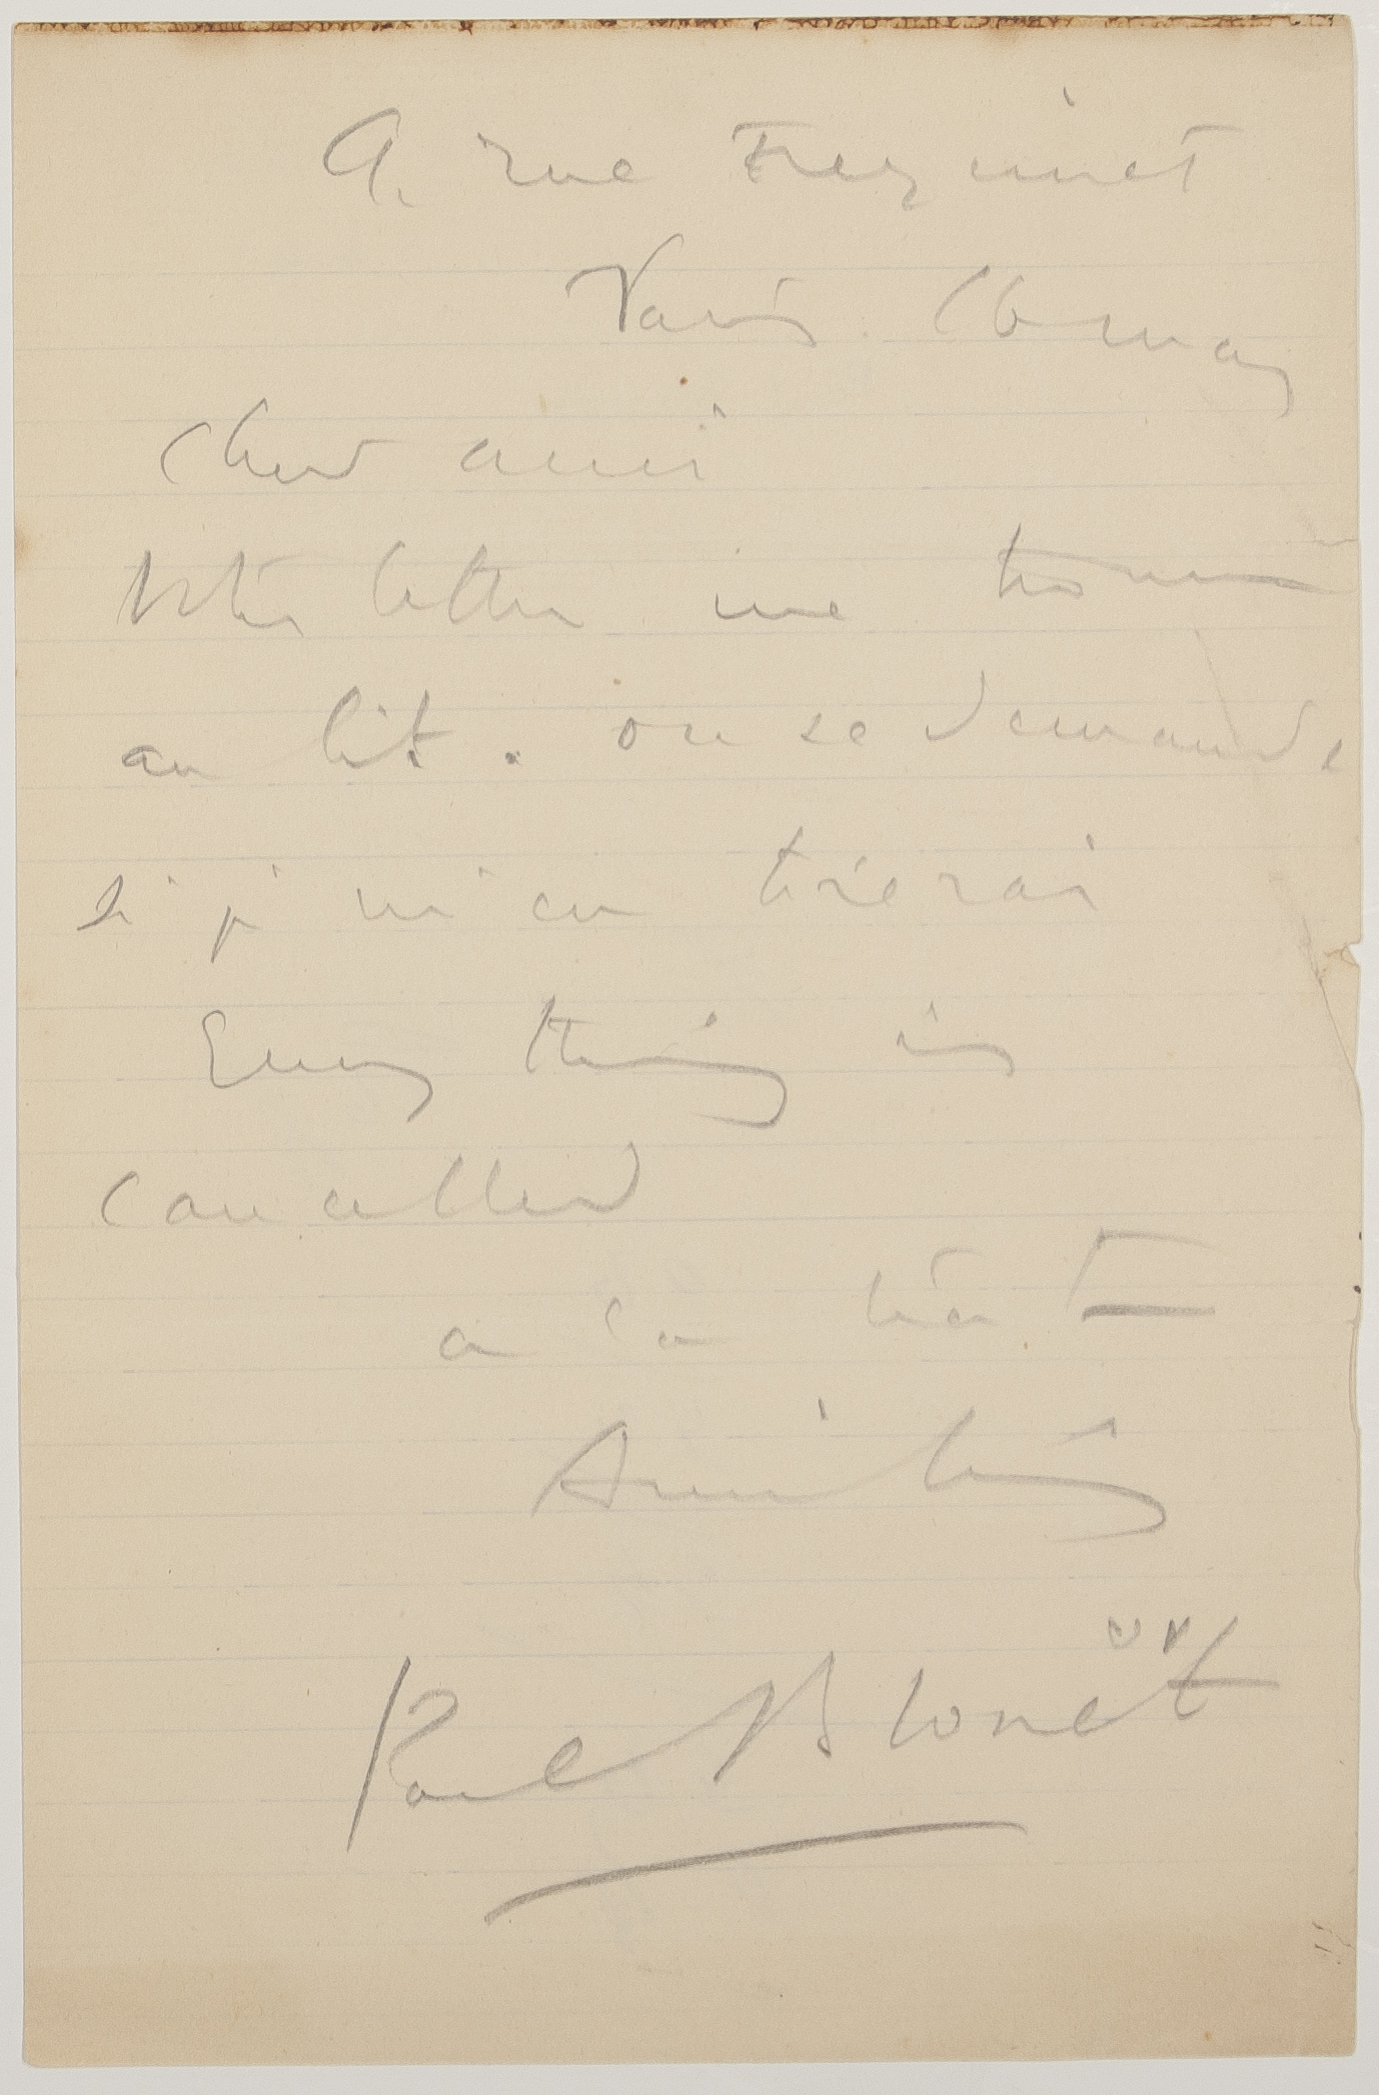 9, rue Freycinet
Paris. 16 may
Cher ami
Votre lettre me trouve
au lit. on se demande
si je m'en tirerai
Every thing is
cancelled
a la hâte
Amitiés
Paul Blouët